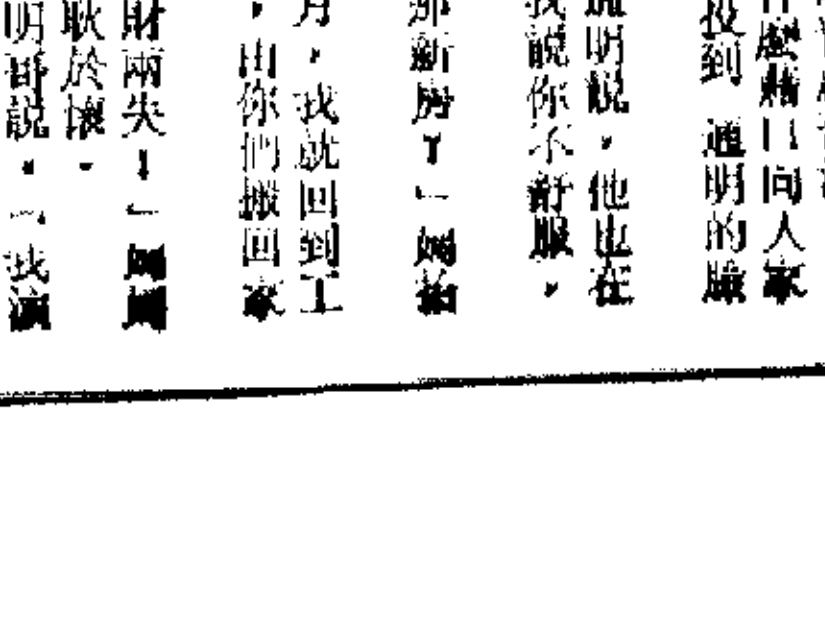 什麼藉口向人家
投到 通明的臉
施明説，他也在
我説你不舒服，
那新房了」媽拍
月，我就回到工
，由你們搬回家
財兩失！」媽
耿於懷。
明哥説。「我